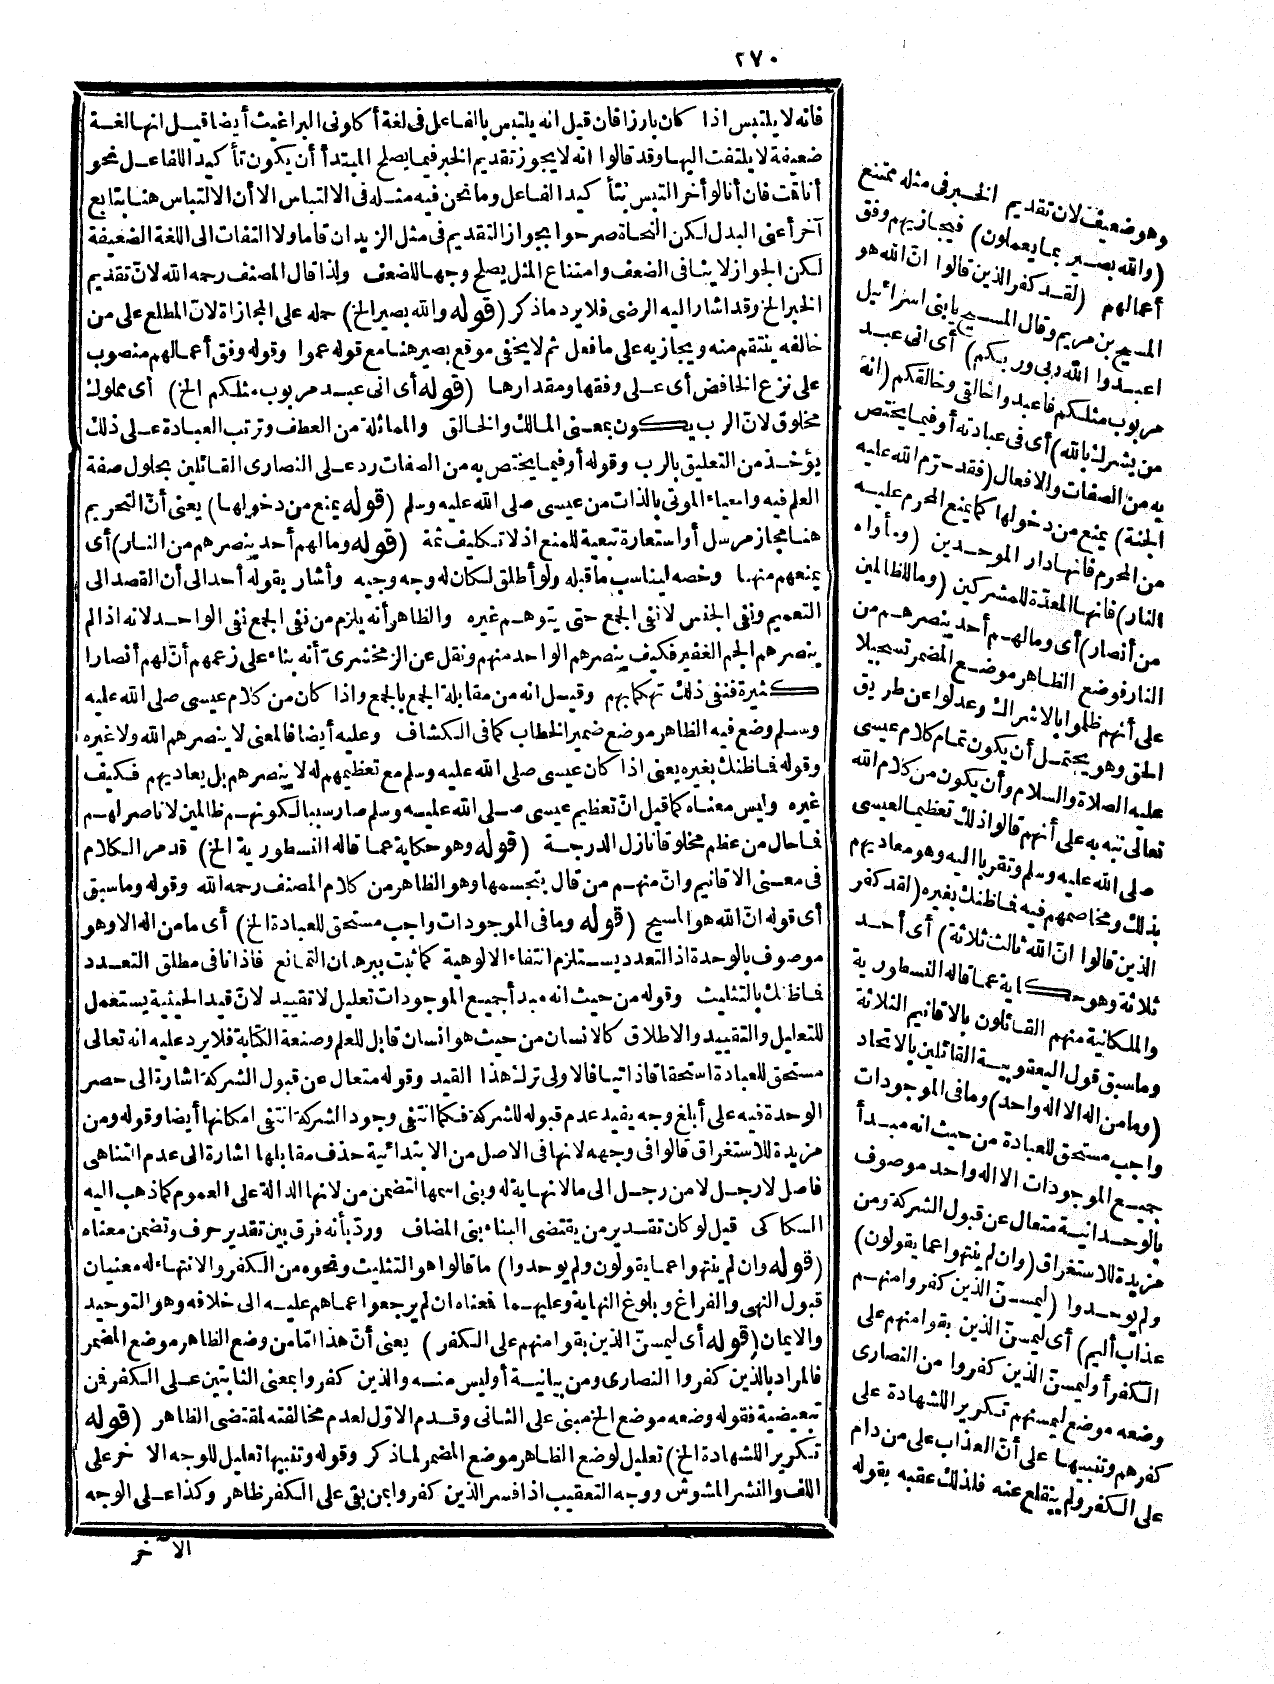 ٢٧٠
فانه لا يلتبس اذا كان بارزا فان قيل انه يلتبس بالفاعل فى لغة أكلونى البراغيث أيضا قيل انها لغة
ضعيفة لا يلتفت اليها وقد قالوا انه لا يجوز تقديم الخبر فيما يصلح المبتدأ أن يكون تأكيد اللفاعل نحو
أنا قمت فان أنا لو أخر التبس بتأكيد الفاعل وما نحن فيه مثله فى الالتباس الا أن الالتباس هنا بتابع
آخر أعنى البدل لكن النحاة صرحوا بجواز التقديم فى مثل الزيدان قاما ولا التفات الى اللغة الضعيفة
لكن الجواز لا ينافى الضعف وامتناع المثل يصلح وجها للضعف ولذا قال المصنف رحمه الله لانّ تقديم
الخبر الخ وقد اشار اليه الرضى فلا يرد ما ذكر (قوله والله بصير الخ) حمله على المجازاة لانّ المطلع على من
خالفه ينتقم منه ويجازيه على ما فعل ثم لا يخفى موقع بصير هنا مع قوله عموا وقوله وفق أعمالهم منصوب
على نزع الخافض أى على وفقها ومقدارها (قوله أى انى عبد مربوب مثلكم الخ) أى مملوك
مخلوق لانّ الرب يكون بمعنى المالك والخالق والمماثلة من العطف وترتب العبادة على ذلك
يؤخذ من التعليق بالرب وقوله أو فيما يختص به من الصفات رد على النصارى القائلين بحلول صفة
العلم فيه واحياء الموتى بالذات من عيسى صلى الله عليه وسلم (قوله يمنع من دخولها) يعنى أنّ التحريم
هنا مجاز مرسل أو استعارة تبعية للمنع اذ لا تكليف ثمة (قوله وما لهم أحد ينصرهم من النار) أى
يمنعهم منها وخصه ليناسب ما قبله ولو أطلق لكان له وجه وجيه وأشار بقوله أحد الى أن القصد الى
التعميم ونفى الجنس لا نفى الجمع حتى يتوهم غيره والظاهر أنه يلزم من نفى الجمع نفى الواحد لانه اذا لم
ينصرهم الجم الغفير فكيف ينصرهم الواحد منهم ونقل عن الزمخشرىّ أنه بناء على زعمهم أنّ لهم أنصارا
كثيرة فنفى ذلك تهكما بهم وقيل انه من مقابلة الجمع بالجمع واذا كان من كلام عيسى صلى الله عليه
وسلم وضع فيه الظاهر موضع ضمير الخطاب كما فى الكشاف وعليه أيضا فالمعنى لا ينصرهم الله ولا غيره
وقوله فما ظنك بغيره يعنى اذا كان عيسى صلى الله عليه وسلم مع تعظيمهم له لا ينصرهم بل يعاديهم فكيف
غيره وليس معناه كما قيل انّ تعظيم عيسى صلى الله عليه وسلم صار سببا لكونهم ظالمين لا ناصر لهم
فما حال من عظم مخلوقا نازل الدرجة (قوله وهو حكاية عما قاله النسطورية الخ) قد مر الكلام
فى معنى الاقانيم وانّ منهم من قال بتجسمها وهو الظاهر من كلام المصنف رحمه الله وقوله وما سبق
أى قوله انّ الله هو المسيح (قوله وما فى الموجودات واجب مستحق للعبادة الخ) أى ما من اله الا وهو
موصوف بالوحدة اذ التعدد يستلزم انتفاء الالوهية كما ثبت ببرهان التمانع فاذا نافى مطلق التعدد
فما ظنك بالتثليث وقوله من حيث انه مبدأ جميع الموجودات تعليل لا تقييد لانّ قيد الحيثية يستعمل
للتعليل والتقييد والاطلاق كالانسان من حيث هو انسان قابل للعلم وصنعة الكتابة فلا يرد عليه انه تعالى
مستحق للعبادة استحقاقا ذاتيا فالاولى ترك هذا القيد وقوله متعال عن قبول الشركة اشارة الى حصر
الوحدة فيه على أبلغ وجه يفيد عدم قبوله للشركة فكما انتفى وجود الشركة انتفى امكانها أيضا وقوله ومن
مزيدة للاستغراق قالوا فى وجهه لانها فى الاصل من الابتدائية حذف مقابلها اشارة الى عدم التناهى
فاصل لا رجل لا من رجل الى ما لا نهاية له وبنى اسمها لتضمن من لانها الدالة على العموم كما ذهب اليه
السكاكى قيل لو كان تقدير من يقتضى البناء بنى المضاف وردّ بأنه فرق بين تقدير حرف وتضمن معناه
(قوله وان لم ينتهوا عما يقولون ولم يوحدوا) ما قالوا هو التثليث ونحوه من الكفر والانتهاء له معنيان
قبول النهى والفراغ وبلوغ النهاية وعليهما فمعناه ان لم يرجعوا عما هم عليه الى خلافه وهو التوحيد
والايمان (قوله أى ليمسنّ الذين بقوا منهم على الكفر) يعنى أنّ هذا امّا من وضع الظاهر موضع المضمر
فالمراد بالذين كفروا النصارى ومن بيانية أو ليس منه والذين كفروا بمعنى الثابتين على الكفر فمن
تبعيضية فقوله وضعه موضع الخ مبنى على الثانى وقدم الاوّل لعدم مخالفته لمقتضى الظاهر (قوله
تكرير للشهادة الخ) تعليل لوضع الظاهر موضع المضمر لما ذكر وقوله وتنبيها تعليل للوجه الآخر على
اللف والنشر المشوش ووجه التعقيب اذا فسر الذين كفروا بمن بقى على الكفر ظاهر وكذا على الوجه
الآخر
وهو ضعيف لان تقديم الخبر فى مثله ممتنع
(والله بصير بما يعملون) فيجازيهم وفق
أعمالهم (لقد كفر الذين قالوا انّ الله هو
المسيح بن مريم وقال المسيح يا بنى اسرائيل
اعبدوا الله ربى وربكم) أى انى عبد
مربوب مثلكم فاعبدوا خالقى وخالقكم (انه
من يشرك بالله) أى فى عبادته أو فيما يختص
به من الصفات والافعال (فقد حرّم الله عليه
الجنة) يمنع من دخولها كما يمنع المحرم عليه
من المحرم فانها دار الموحدين (ومأواه
النار) فانها المعدّة للمشركين (وما للظالمين
من أنصار) أى وما لهم أحد ينصرهم من
النار فوضع الظاهر موضع المضمر تسجيلا
على أنهم ظلموا بالاشراك وعدلوا عن طريق
الحق وهو يحتمل أن يكون تمام كلام عيسى
عليه الصلاة والسلام وأن يكون من كلام الله
تعالى تنبه به على أنهم قالوا ذلك تعظيما لعيسى
صلى الله عليه وسلم وتقربا اليه وهو معاديهم
بذلك ومخاصمهم فيه فما ظنك بغيره (لقد كفر
الذين قالوا انّ الله ثالث ثلاثة) أى أحد
ثلاثة وهو حكاية عما قاله النسطورية
والملكانية منهم القائلون بالاقانيم الثلاثة
وما سبق قول اليعقوبية القائلين بالاتحاد
(وما من اله الا اله واحد) وما فى الموجودات
واجب مستحق للعبادة من حيث انه مبدأ
جميع الموجودات الا اله واحد موصوف
بالوحدانية متعال عن قبول الشركة ومن
مزيدة للاستغراق (وان لم ينتهوا عما يقولون)
ولم يوحدوا (ليمسنّ الذين كفروا منهم
عذاب أليم) أى ليمسنّ الذين بقوا منهم على
الكفر أو ليمسنّ الذين كفروا من النصارى
وضعه موضع ليمسنهم تكرير اللشهادة على
كفرهم وتنبيها على أنّ العذاب على من دام
على الكفر ولم ينقلع عنه فلذلك عقبه بقوله